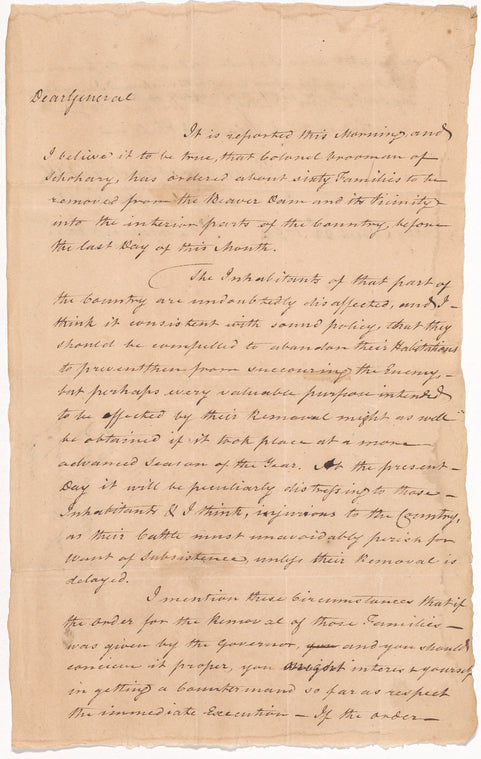 Dear General
It is reported this Morning, and
I believe it to be true, that Colonel Vrooman of
Schohary, has ordered about sixty Families to be
removed from the Beaver Dam and its Vicinity
into the interior parts of the Country, before
the last Day of this Month.
The Inhabitants of that part of
the Country are undoubtedly disaffected, and I
think it consistent with sound policy, that they
should be compelled to abandon their Habitations
to prevent them from succouring the Enemy,
but perhaps every valuable purpose intended
to be effected by their Removal might as well
be obtained if it took place at a more
advanced Season of the Year. At the present
Day it will be peculiarly distressing to those
Inhabitants & I think, injurious to the Country,
as their Cattle must unavoidably perish for
want of Subsistence, unless their Removal is
delayed.
I mention these Circumstances that if
the order for the Removal of those Families
was given by the Governor, and you should
conceive it proper, you might interest yourself
in getting a Countermand so far as respect
the immediate Execution — If the order